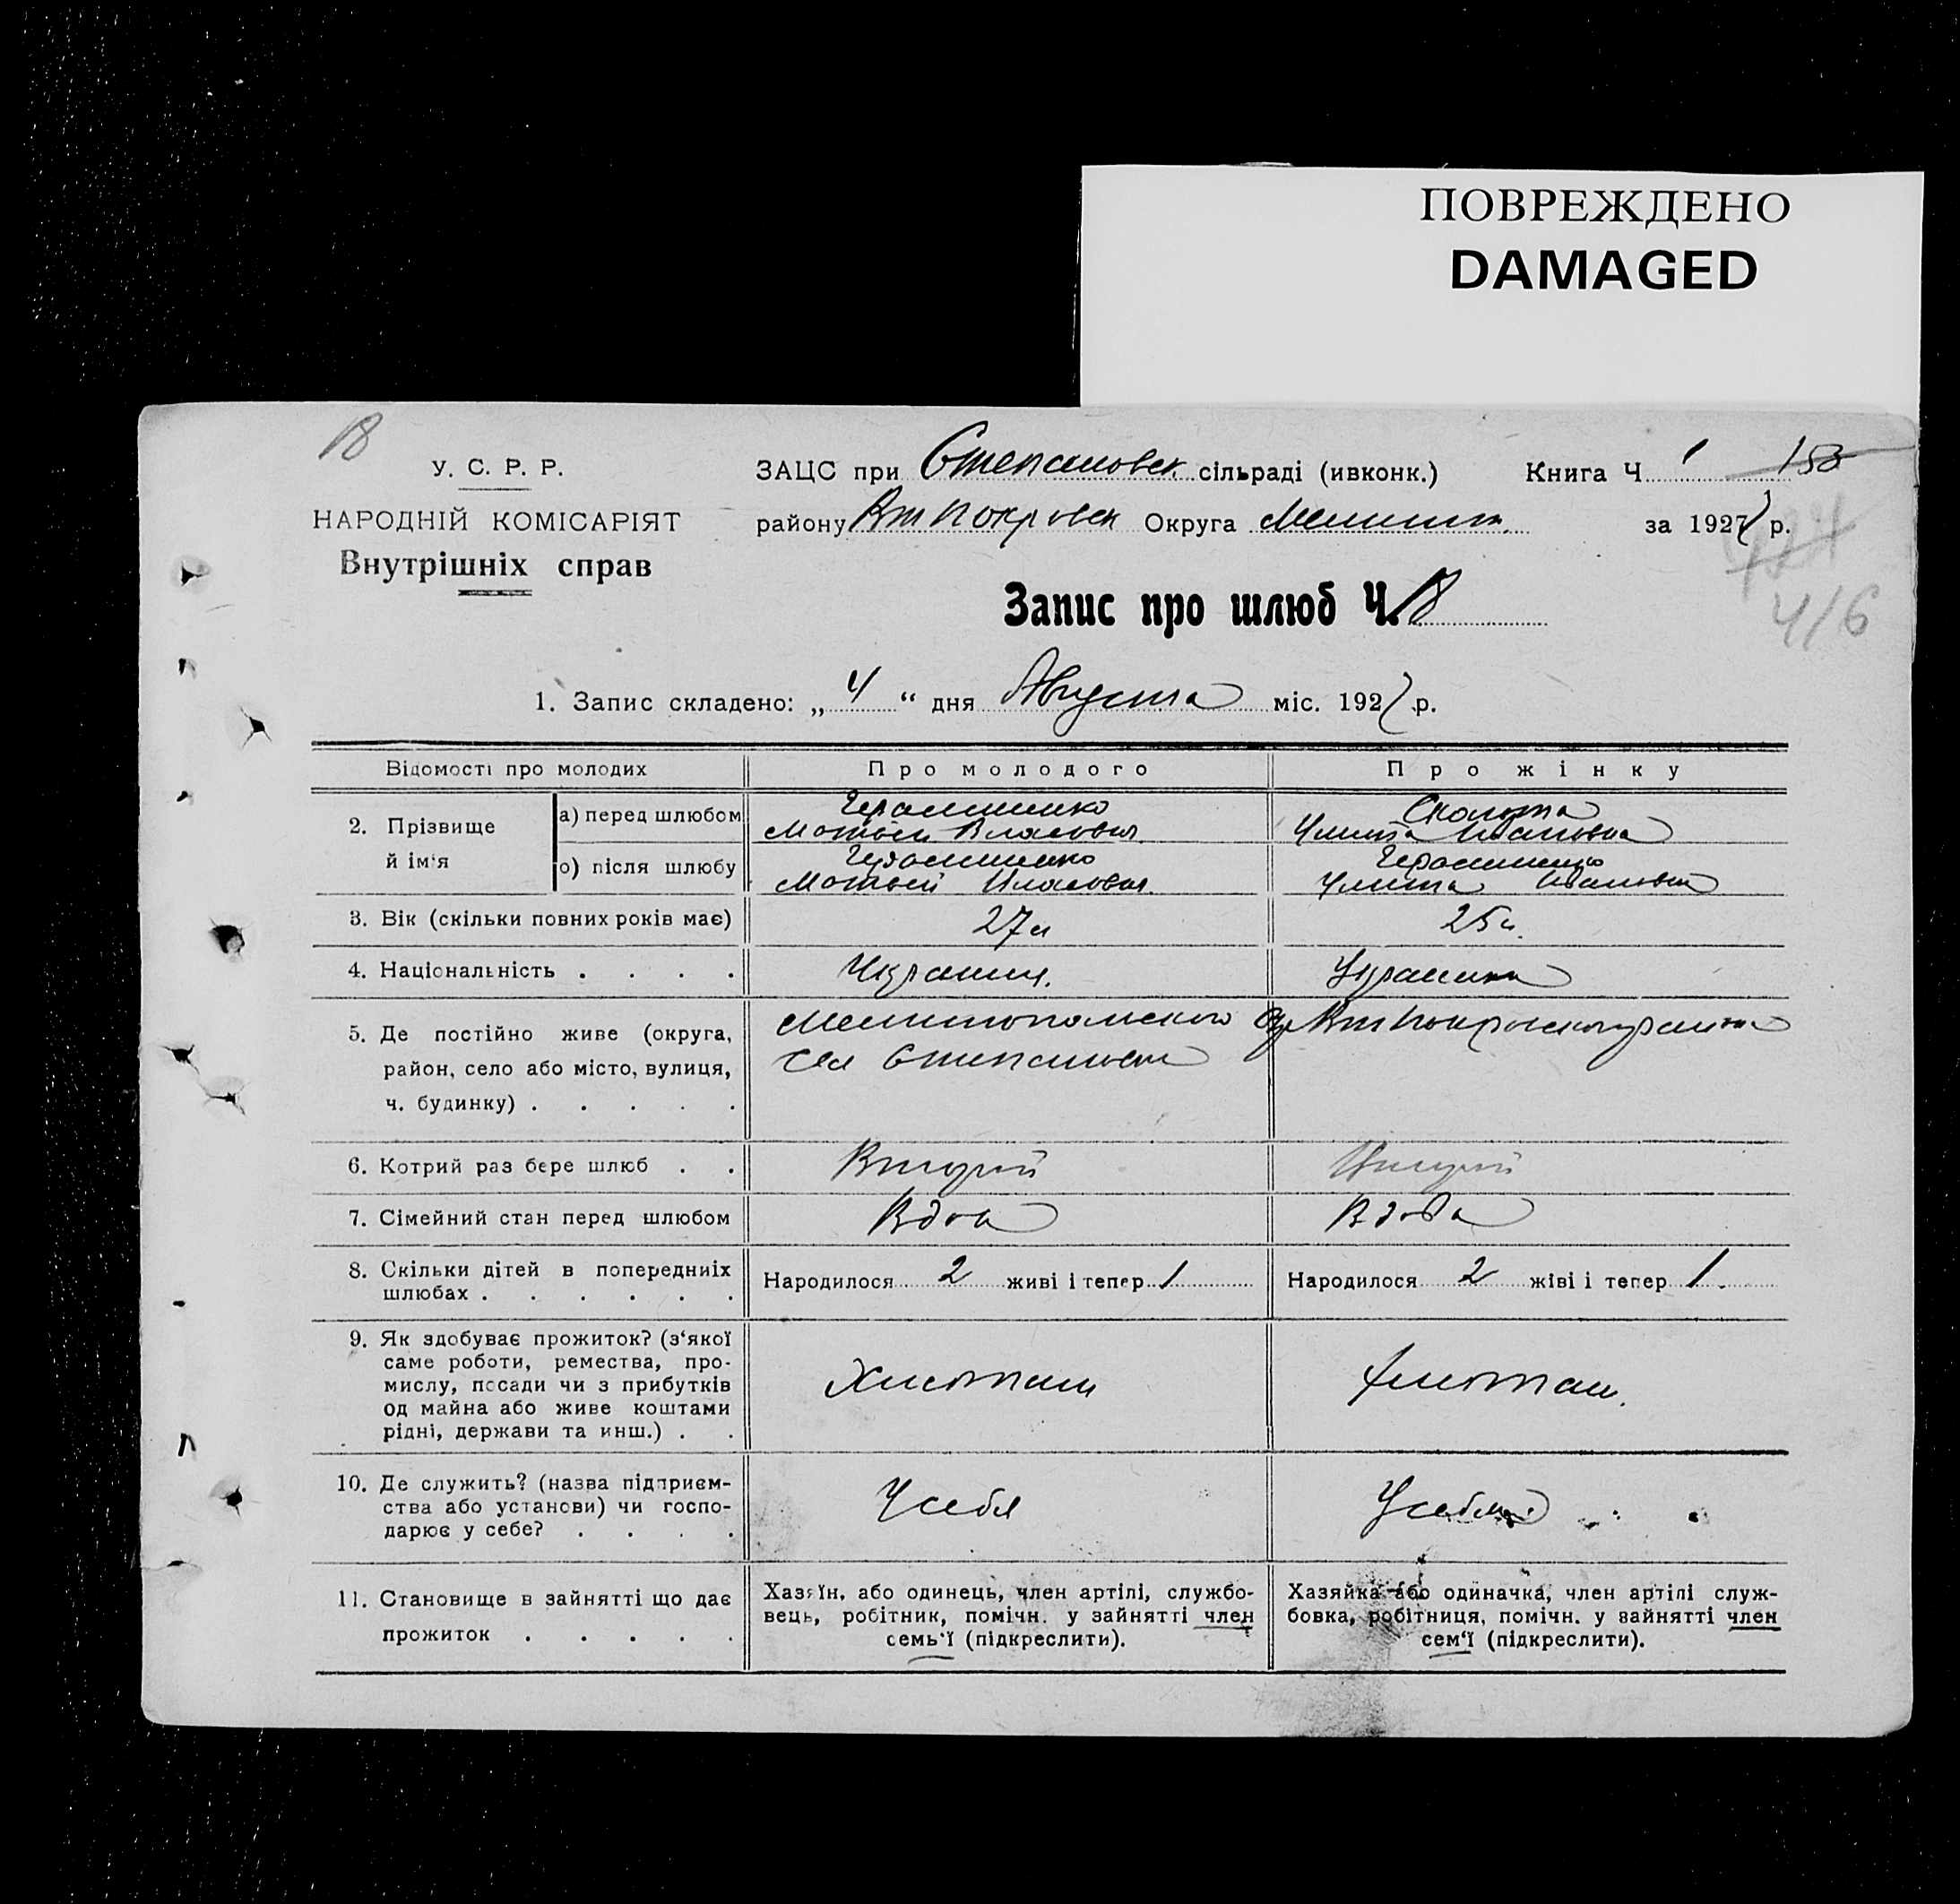 ПОВРЕЖДЕНО
DAMAGED
18
У. С. Р. Р.
НАРОДНІЙ КОМІСАРІЯТ
Внутрішніх справ
ЗАЦС при Степановск сільраді (ивконк.) Книга Ч 1 158
району Вт Покровск Округа Мелитоп за 1927 р.
416
Запис про шлюб Ч. 18
1. Запис складено: „ 4 “ дня Августа міс. 1927 р.
Відомості про молодих Про молодого Про жінку
2. Прізвище й ім‘я
а) перед шлюбом
Герасименко
Матвей Власович
Ивановна
о) після шлюбу
Герасименко
Матвей Власович
Герасименко
Ивановна
3. Вік (скільки повних років має) 27 л 25 л.
4. Національність . . . . Украинц. Украинка
5. Де постійно живе (округа,
район, село або місто, вулиця,
ч. будинку) . . . . .
Мелитопольского Окр Вт Покровского района
сел Степановки
6. Котрий раз бере шлюб . . Вторий Вторий
7. Сімейний стан перед шлюбом Вдов Вдова
8. Скільки дітей в попередниіх
шлюбах . . . . . .
Народилося 2 живі і тепер 1 Народилося 2 жіві і тепер 1.
9. Як здобуває прожиток? (з‘якої
саме роботи, ремества, про-
мислу, посади чи з прибутків
од майна або живе коштами
рідні, держави та инш.) . .
Хлеботаш
10. Де служить? (назва підприєм-
ства або установи) чи госпо-
дарює у себе? . . . .
У себя У себя
11. Становище в зайнятті що дає
прожиток . . . . .
Хазяїн, або одинець, член артілі, службо-
вець, робітник, помічн. у зайнятті член
семь‘ї (підкреслити).
Хазяйка або одиначка, член артілі служ-
бовка, робітниця, помічн. у зайнятті член
сем‘ї (підкреслити).